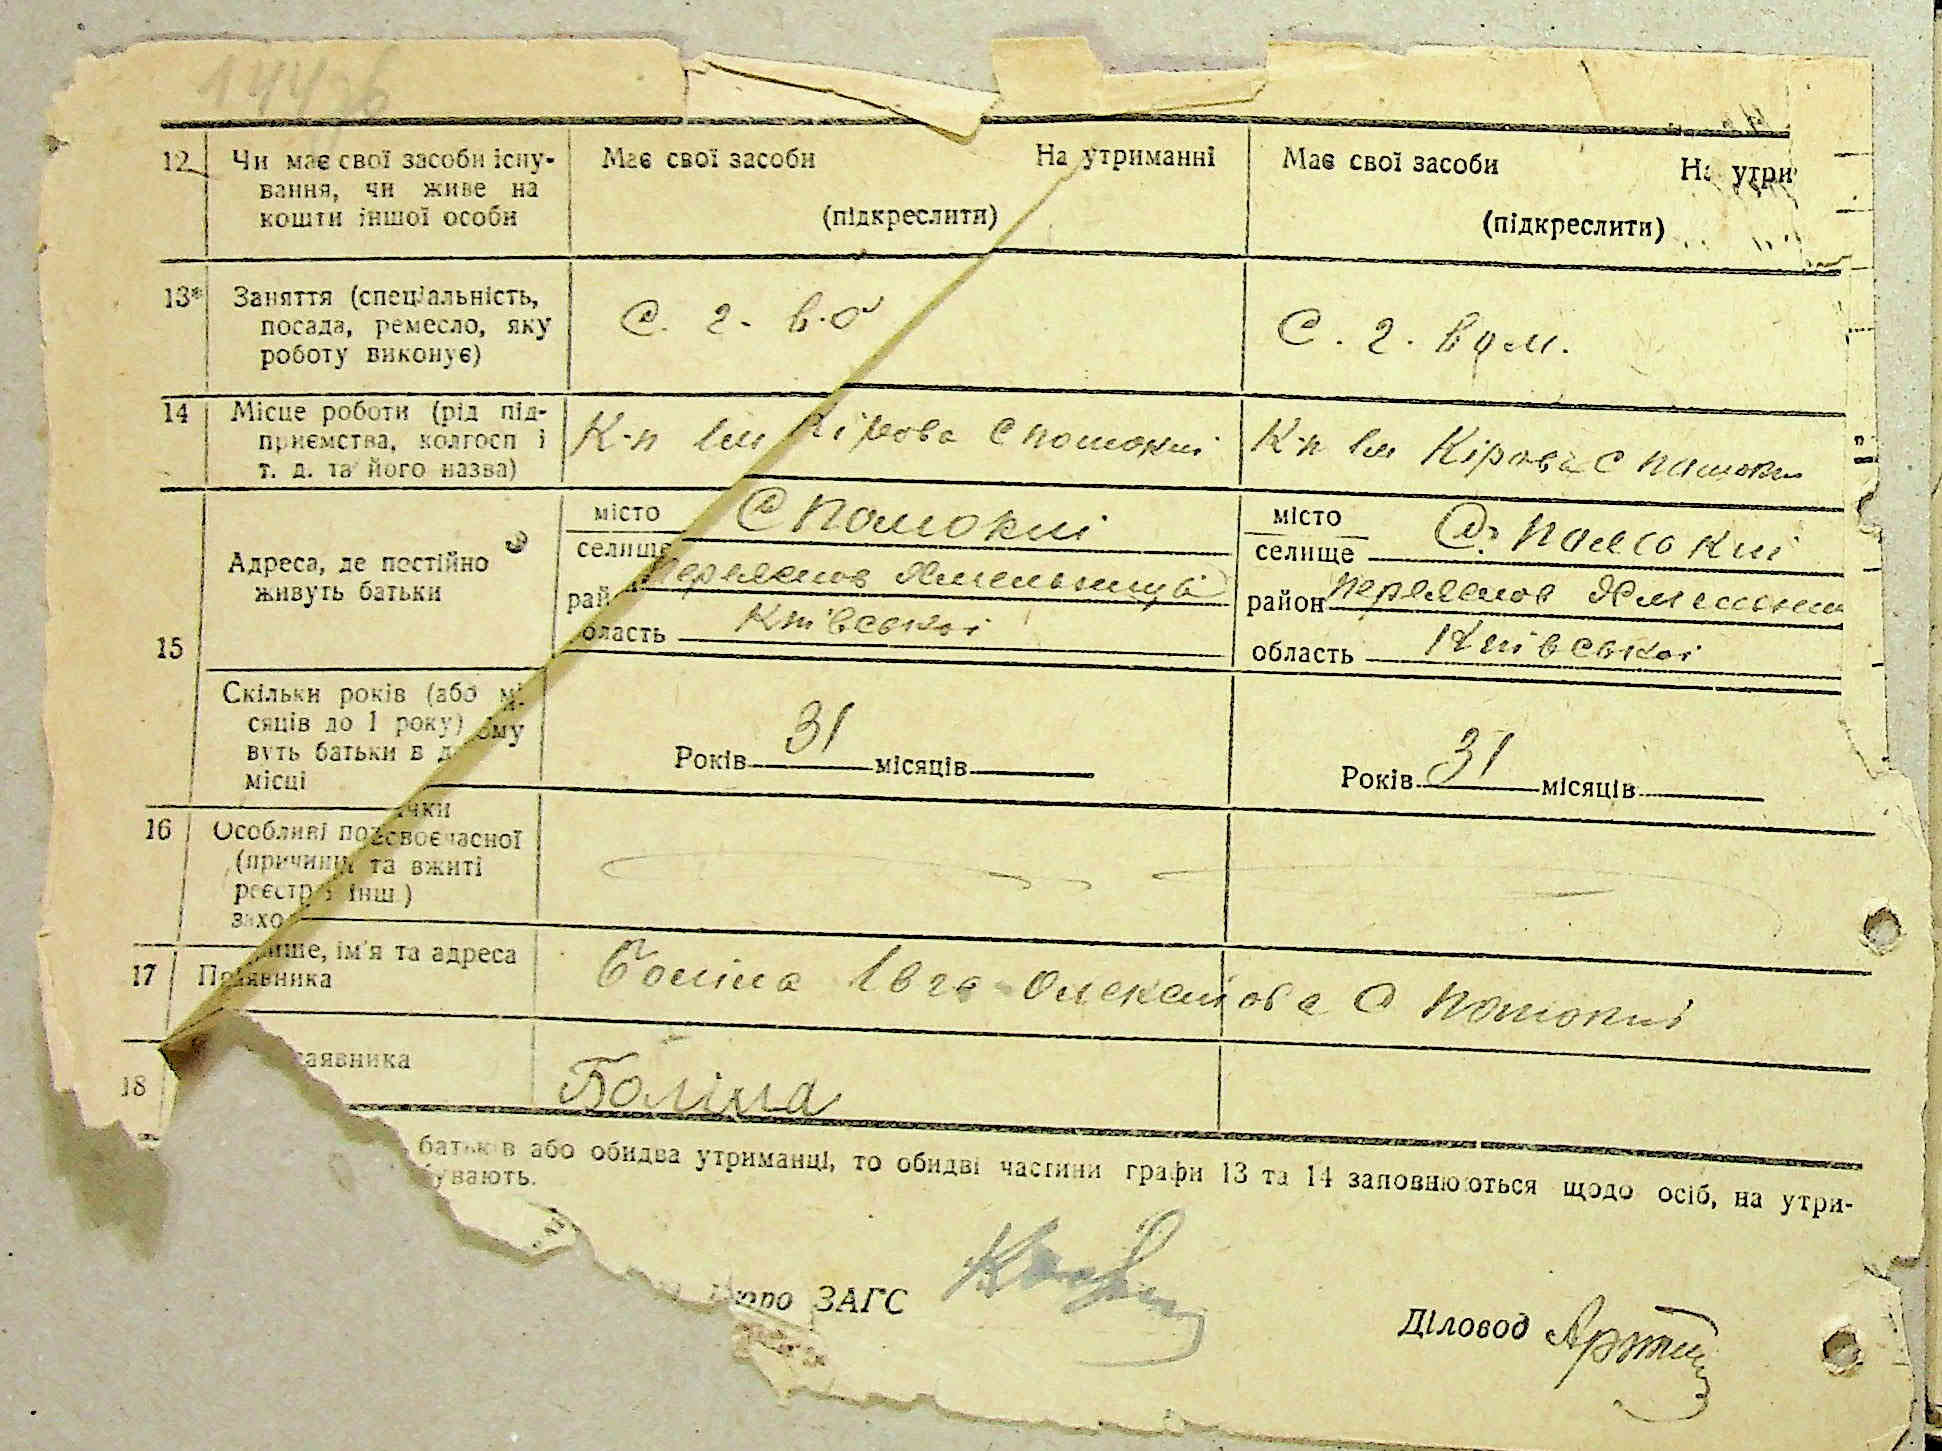 12 Чи має свої засоби існу-
вання, чи живе на
кошти іншої особи
Має свої засоби На утриманні
(підкреслити)
Має свої засоби На утри
(підкреслити)
13* Заняття (спеціальність,
посада, ремесло, яку
роботу виконує)
С. г.
С. г.
14 Місце роботи (рід під-
приємства, колгосп і
т. д. та його назва)
К-п ім Кірова с Потокиі
К-п ім Кірова с Потоки
15
Адреса, де постійно
живуть батьки
місто
селище
С Потокиі
рай
область
Київськоі
місто
селище
С. Потокиі
район
область
Київськоі
Скільки років (або мі-
сяців до 1 року)
вуть батьки в
місці
ому
Років 31 місяців
Років 31 місяців
16 Особливі
своєчасної
(причини та вжиті
реєстр інш.)
захо
чки
17
ище, ім'я та адреса
явника
Боліла Олексіӥова с Потокиі
18
заявника
Боліла
батьків або обидва утриманці, то обидві частини графи 13 та 14 заповнюються щодо осіб, на утри-
бувають.
бюро ЗАГС
Діловод